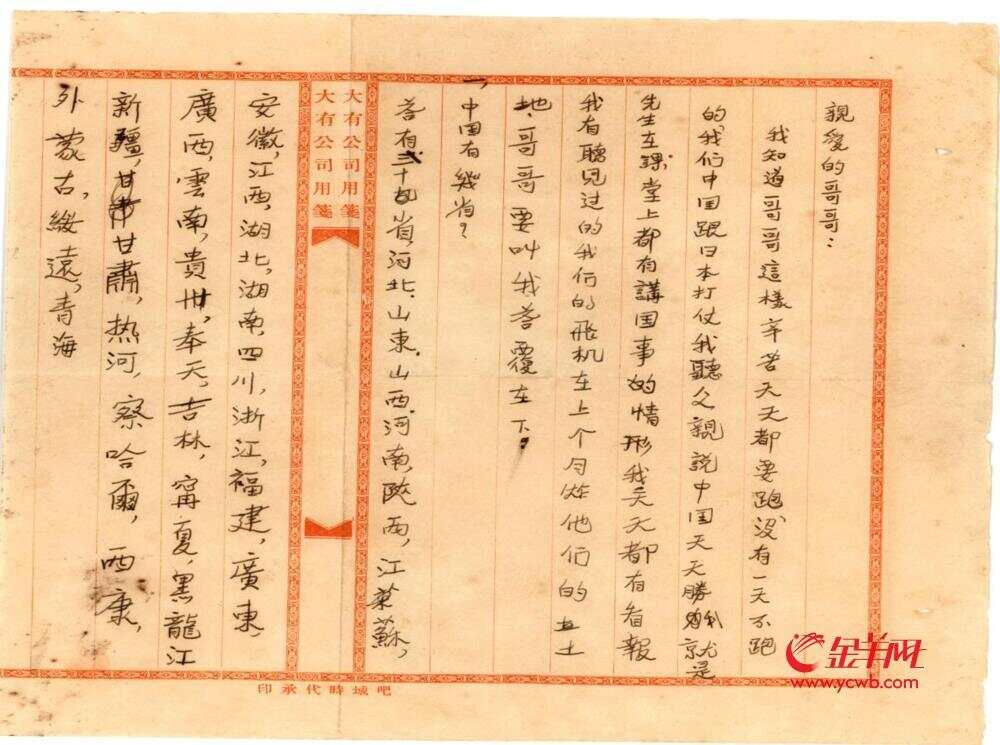 親愛的哥哥：
我知道哥哥這樣辛苦天天都要跑，没有一天不跑
的，我们中国跟日本打仗我聽父親説中国天天勝就是
先生在課堂上都有講国事的情形我天天都有看報
我有聽見过的我们的飛机在上个月炸他们的土
地，哥哥要叫我荅覆在下。
一、
中国有幾省？
荅有二十八省，河北，山東，山西，河南，陝西，江蘇，
大有公司用箋
大有公司用箋
安徽，江西，湖北，湖南，四川，浙江，福建，廣東，
廣西，雲南，貴州，奉天，吉林，甯夏，黑龍江
新疆，甘肅，热河，察哈爾，西康，
外蒙古，綏遠，青海
吧城時代承印
金羊网
www.ycwb.com